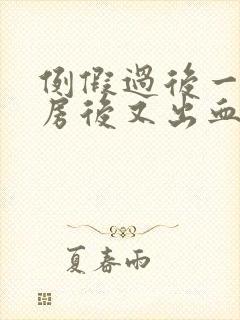 例假過後一
房後又出血
夏春雨